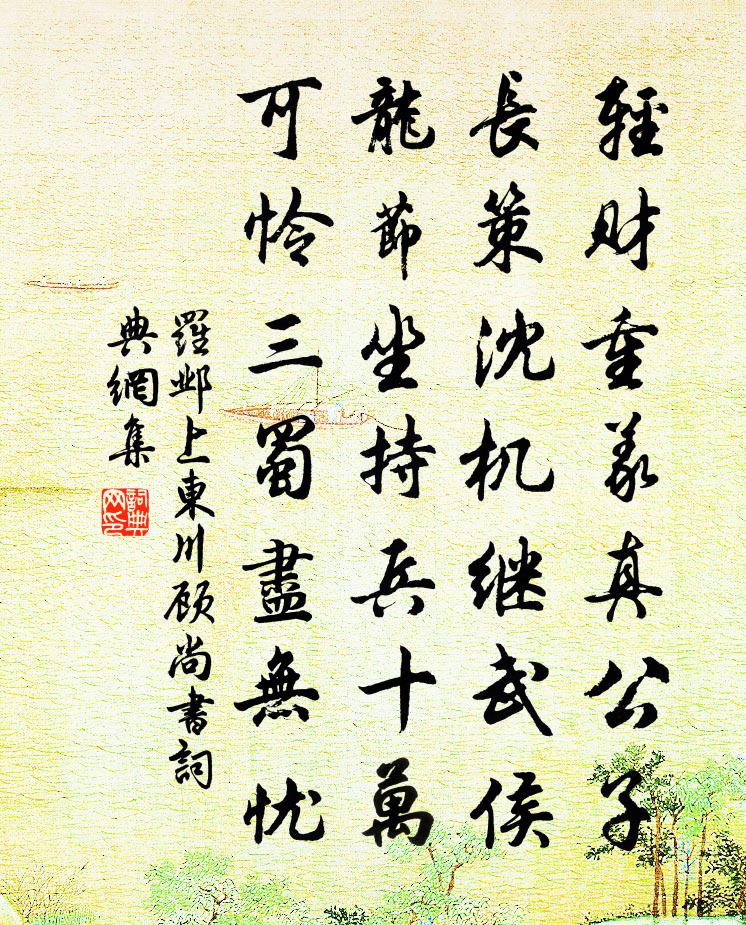 輕财重義真公子
長策沈机继武侯
龍節坐持兵十萬
可怜三蜀盡無忧
羅邺上東川顾尚書詞
典網集
詞典
网印